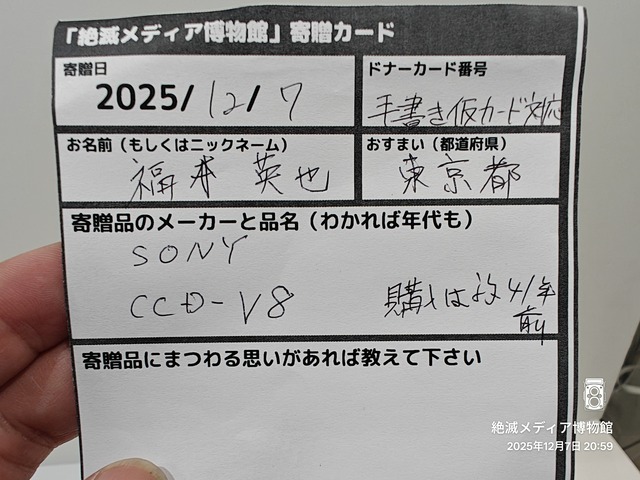 「絶滅メディア博物館」寄贈カード
寄贈日
2025/12/7
ドナーカード番号
手書き仮カード対応
お名前（もしくはニックネーム）
福本 英也
おすまい（都道府県）
東京都
寄贈品のメーカーと品名（わかれば年代も）
SONY
CCD-V8
購入は
41年
前
寄贈品にまつわる思いがあれば教えて下さい
絶滅メディア博物館
2025年12月7日 20:59